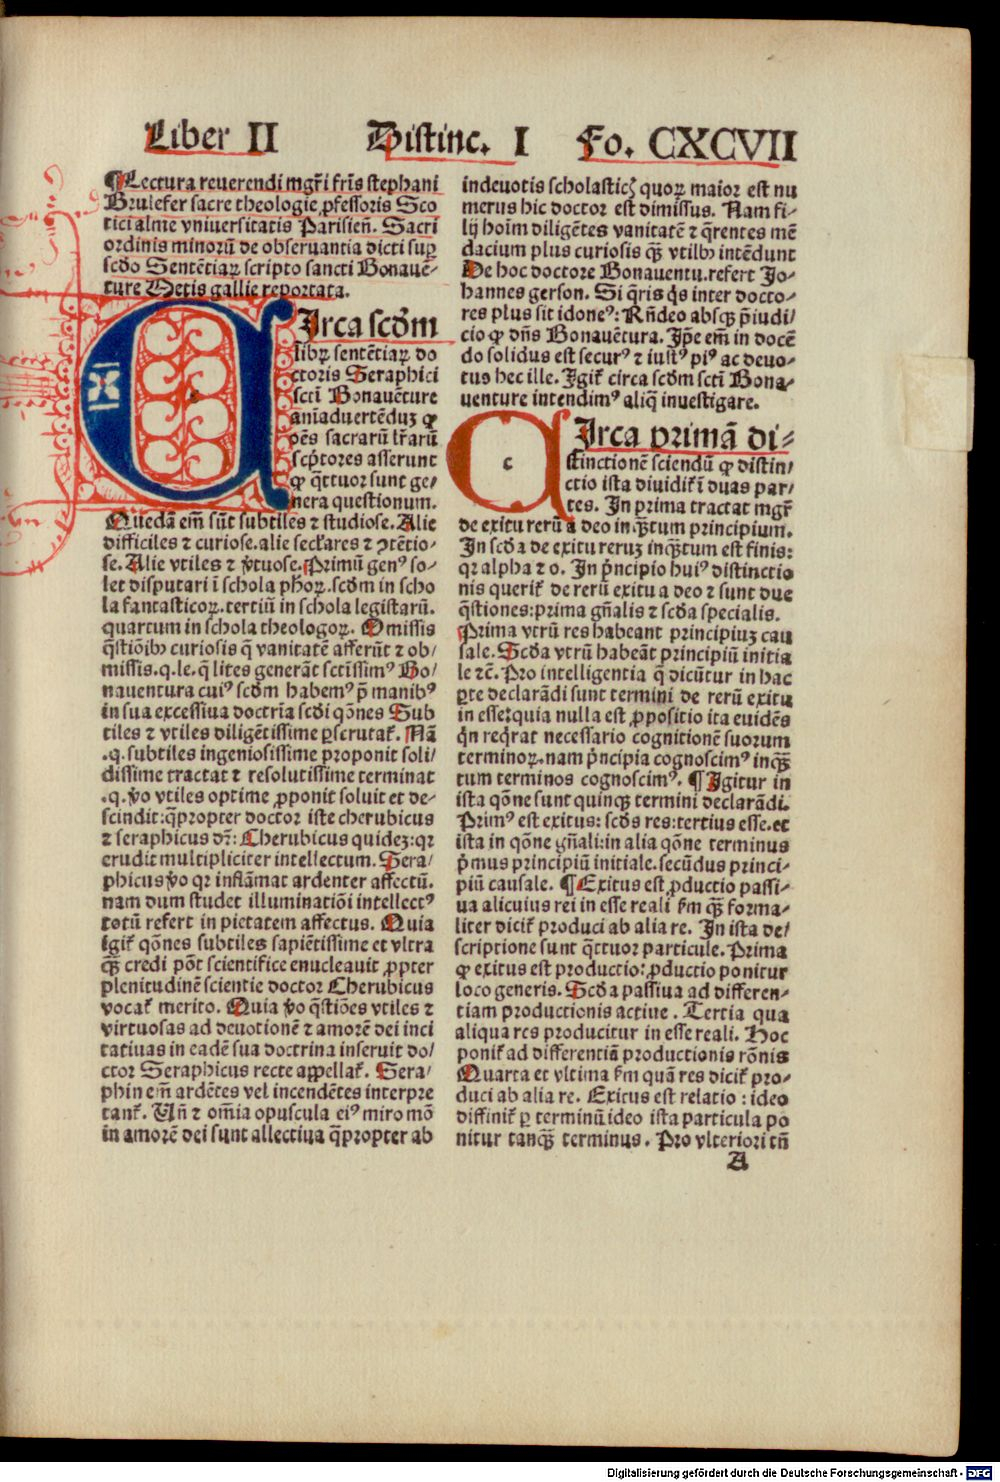 Liber II Distinc. I Fo. CXCVII
¶Lectura reuerendi mgr̄i fr̄is stephani
Brulefer sacre theologie ꝓfessoris Sco
tici alme vniuersitatis Parisien̄. Sacri
ordinis minorū de obseruantia dicti suꝑ
scd̄o Sentētiaꝝ scripto sancti Bonauē-
ture Metis gallie reportata.
CIrca scd̄m
libꝝ sentētiaꝝ do
ctoris Seraphici
scti Bonauēture
aniaduertēduꝫ ꝙ
oēs sacrarū lr̄arū
scp̄tores asserunt
ꝙ q̄ttuor sunt ge-
nera questionum.
Quedā em̄ sūt subtiles ⁊ studiose. Alie
difficiles ⁊ curiose. alie seclares ⁊ ꝯtētio-
se. Alie vtiles ⁊ v̄tuose. Primū genꝰ so-
let disputari ī schola ph̄oꝝ. scd̄m in scho
la fantasticoꝝ. tertiū in schola legistarū.
quartum in schola theologoꝝ. Omissis
q̄stiōibꝰ curiosis q̄ vanitatē afferūt ⁊ ob-
missis .q. le. q̄ lites generāt sctissimꝰ Bo-
nauentura cuiꝰ scd̄m habemꝰ p̄ manibꝰ
in sua excessiua doctrīa scd̄i qōnes Sub
tiles ⁊ vtiles diligētissime ꝑscrutat̄. Nā
.q. subtiles ingeniosissime proponit soli-
dissime tractat ⁊ resolutissime terminat
.q. v̄o vtiles optime ꝓponit soluit et de-
scindit: q̄propter doctor iste cherubicus
⁊ seraphicus dr̄: Cherubicus quideꝫ: qꝛ
erudit multipliciter intellectum. Sera/
phicus v̄o qꝛ inflāmat ardenter affectū.
nam dum studet illuminatiōi intellectꝰ
totū refert in pietatem affectus. Quia
igit̄ qōnes subtiles sapiētissime et vltra
qꝙ̄ credi pōt scientifice enucleauit ꝓpter
plenitudinē scientie doctor Cherubicus
vocat̄ merito. Quia v̄o q̄stiōes vtiles ⁊
virtuosas ad deuotionē ⁊ amorē dei inci
tatiuas in eadē sua doctrina inseruit do/
ctor Seraphicus recte appellat̄. Sera/
phin em̄ ardētes vel incendētes interpre
tant̄. Un̄ ⁊ om̄ia opuscula eiꝰ miro mō
in amorē dei sunt allectiua q̄propter ab
indeuotis scholasticꝭ quoꝝ maior est nu
merus hic doctor est dimissus. Nam fi-
lij hoīm diligētes vanitatē ⁊ q̄rentes mē
dacium plus curiosis qꝙ̄ vtilibꝰ intēdunt
De hoc doctore Bonauentu. refert Jo-
hannes gerson. Si q̄ris q̄s inter docto-
res plus sit idoneꝰ: Rn̄deo absqꝫ p̄iudi/
cio ꝙ dn̄s Bonauētura. Ip̄e em̄ in docē
do solidus est securꝰ ⁊ iustꝰ piꝰ ac deuo-
tus hec ille. Igit̄ circa scd̄m scti Bona-
uenture intendimꝰ aliq̄ inuestigare.
CIrca primā di-
stinctionē sciendū ꝙ distin/
ctio ista diuidit̄ ī duas par/
tes. In prima tractat mgr̄
de exitu rerū a deo in qꝙ̄tum principium.
In scd̄a de exitu reruꝫ in qꝙ̄tum est finis:
qꝛ alpha ⁊ o. In p̄ncipio huiꝰ distinctio
nis querit̄ de rerū exitu a deo ⁊ sunt due
q̄stiones: prima gn̄alis ⁊ scd̄a specialis.
Prima vtrū res habeant principiuꝫ cau
sale. Scd̄a vtrū habeāt principiū initia
le ⁊c̄. Pro intelligentia q̄ dicūtur in hac
ꝑte declarādi sunt termini de rerū exitu
in esse: quia nulla est ꝓpositio ita euidēs
q̄n req̄rat necessario cognitionē suorum
terminoꝝ. nam p̄ncipia cognoscimꝰ inqꝙ̄
tum terminos cognoscimꝰ. ¶ Igitur in
ista qōne sunt quinqꝫ termini declarādi.
Primꝰ est exitus: scd̄s res: tertius esse. et
ista in qōne gn̄ali: in alia qōne terminus
p̄mus principiū initiale. secūdus princi-
piū causale. ¶ Exitus est ꝓductio passi-
ua alicuius rei in esse reali ẜm qꝙ̄ forma-
liter dicit̄ produci ab alia re. In ista de/
scriptione sunt q̄ttuor particule. Prima
ꝙ exitus est productio: ꝓductio ponitur
loco generis. Scd̄a passiua ad differen-
tiam productionis actiue. Tertia qua
aliqua res producitur in esse reali. Hoc
ponit̄ ad differentiā productionis rōnis
Quarta et vltima ẜm quā res dicit̄ pro-
duci ab alia re. Exitus est relatio: ideo
diffinit̄ ꝑ terminū ideo ista particula po
nitur tanqꝙ̄ terminus. Pro vlteriori tn̄
A
c
Digitalisierung gefördert durch die Deutsche Forschungsgemeinschaft - DFG